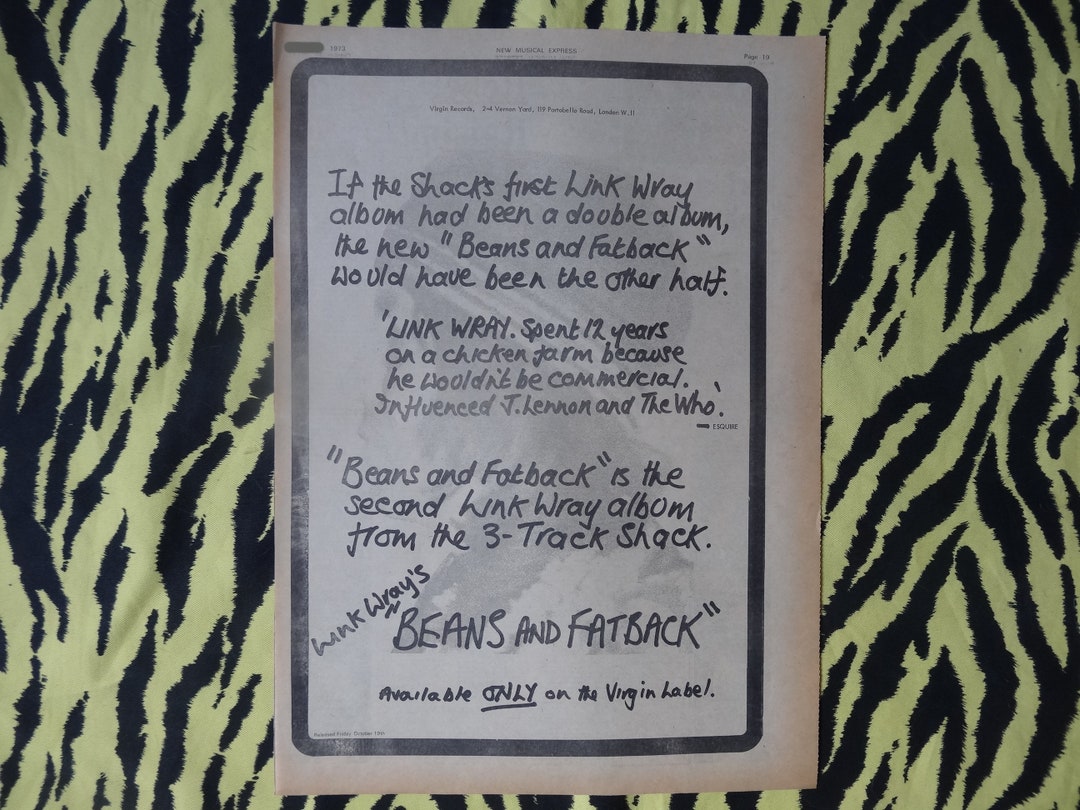 1973
NEW MUSICAL EXPRESS
Page 19
Virgin Records, 2-4 Vernon Yard, 119 Portobello Road, London W.11
If the Shack's first Link Wray
album had been a double album,
the new "Beans and Fatback"
would have been the other half.
'LINK WRAY. Spent 12 years
on a chicken farm because
he wouldn't be commercial.
Influenced J. Lennon and The Who.'
— ESQUIRE
"Beans and Fatback" is the
second Link Wray album
from the 3-Track Shack.
Link Wray's
"BEANS AND FATBACK"
Available ONLY on the Virgin Label.
Released Friday October 19th